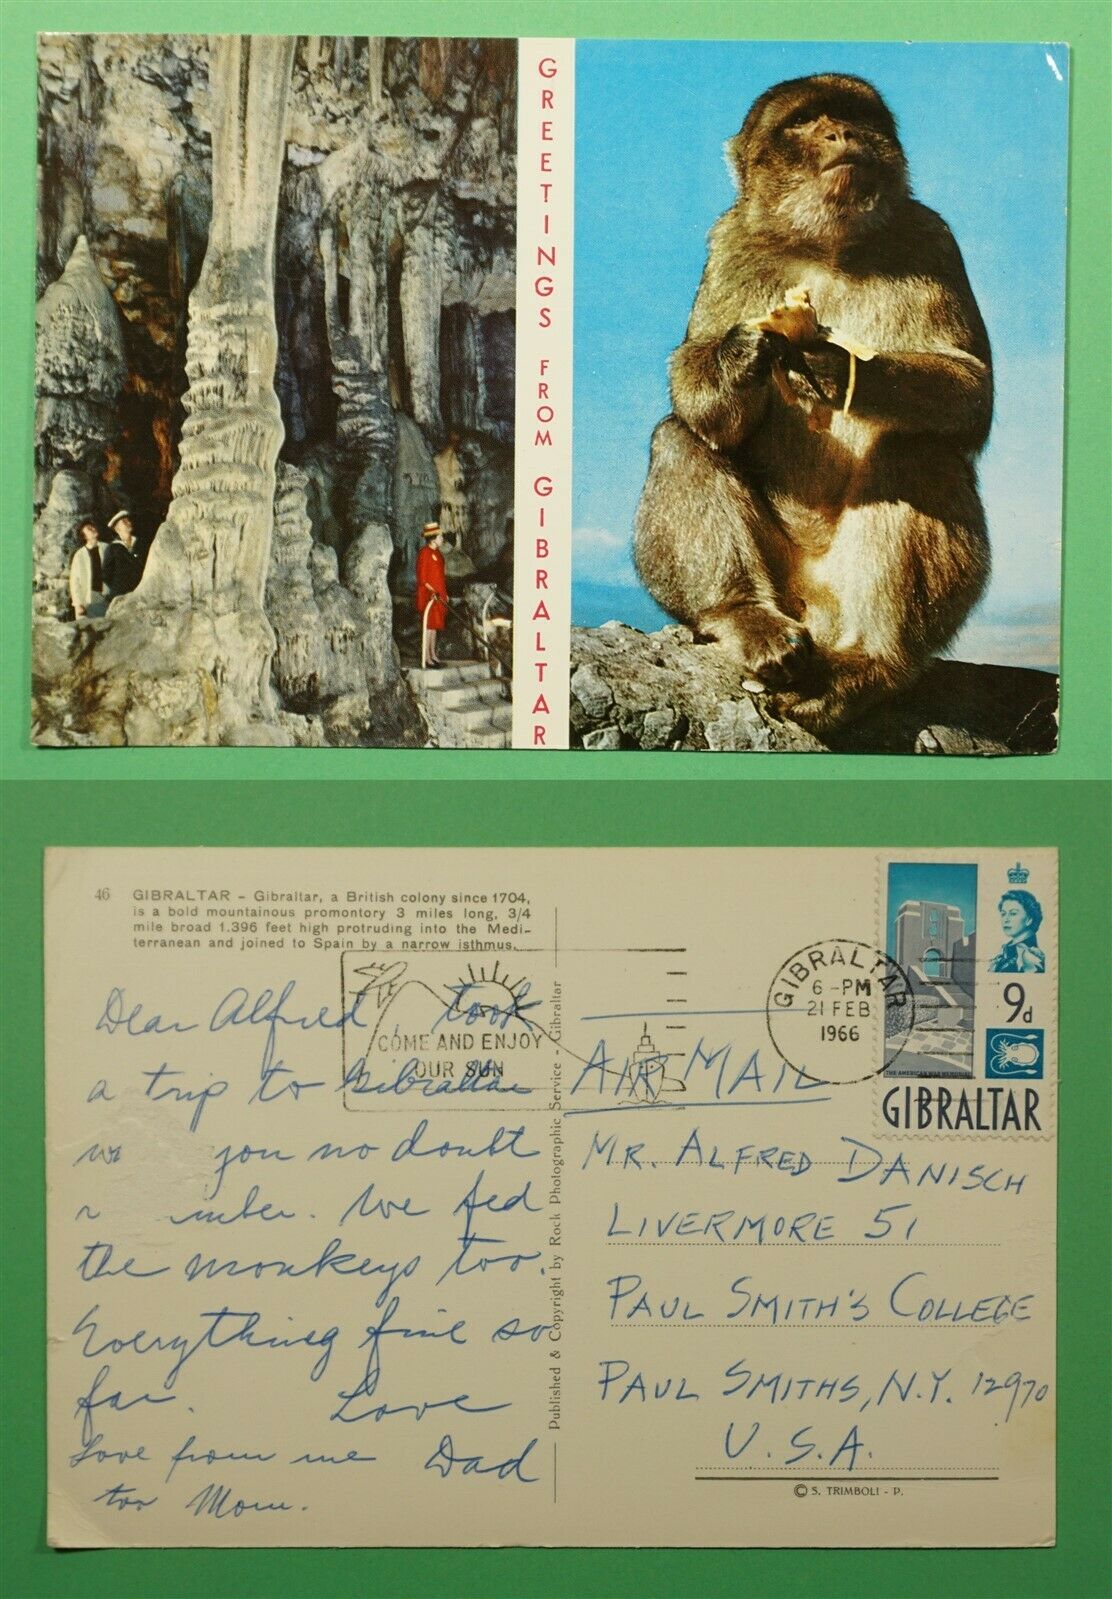 GREETINGS FROM GIBRALTAR
46 GIBRALTAR - Gibraltar, a British colony since 1704,
is a bold mountainous promontory 3 miles long, 3/4
mile broad 1.396 feet high protruding into the Medi-
terranean and joined to Spain by a narrow isthmus.
Dear Alfred took
a trip to Gibraltar
you no doubt
We fed
the monkeys too.
Everything fine so
far. Love
Dad
Love from me
too Mom.
COME AND ENJOY
OUR SUN
Published & Copyright by Rock Photographic Service - Gibraltar
GIBRALTAR
6 - PM
21 FEB
1966
9d
THE AMERICAN WAR MEMORIAL
GIBRALTAR
AIR MAIL
MR. ALFRED DANISCH
LIVERMORE 51
PAUL SMITH'S COLLEGE
PAUL SMITHS, N.Y. 12970
U.S.A.
© S. TRIMBOLI - P.